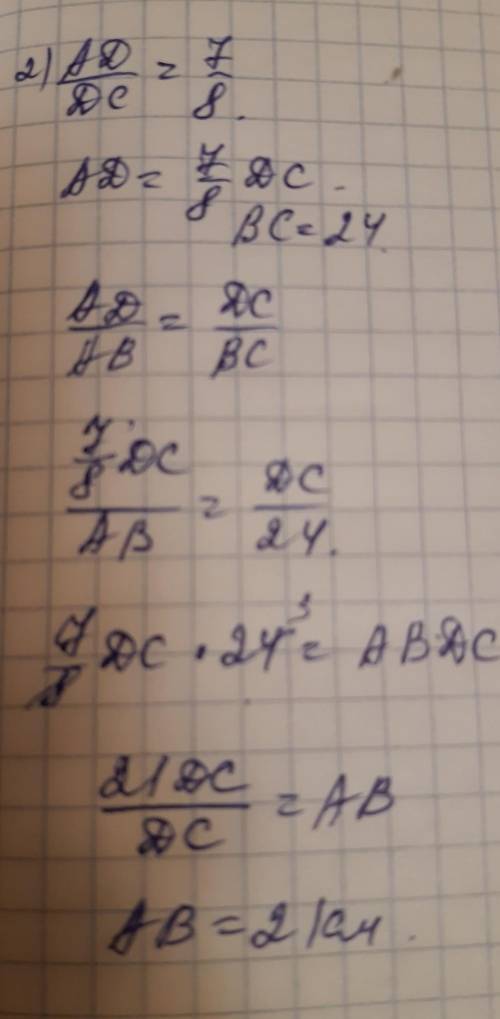 2) AD/DC = 7/8.
AD = 7/8 DC.
BC = 24
AD/AB = DC/BC
7/8 DC / AB = DC/24.
7/8 DC · 24³ = AB DC
21DC/DC = AB
AB = 21см.